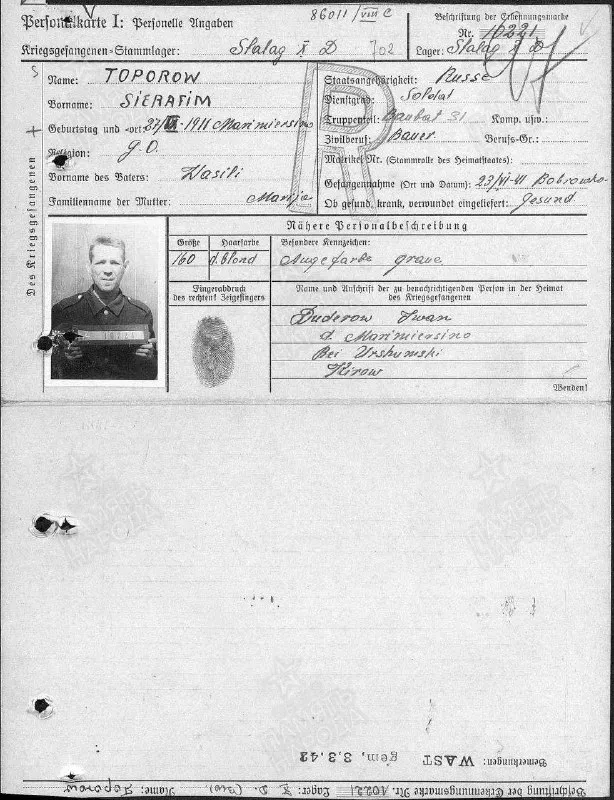 86011/VIII C
Personalkarte I: Personelle Angaben
Beschriftung der Erkennungsmarke
Nr. 10221
Kriegsgefangenen-Stammlager: Stalag X D 702
Lager: Stalag X D
Des Kriegsgefangenen
Name: TOPOROW
Staatsangehörigkeit: Russe
Vorname: SIERAFIM
Dienstgrad: Soldat
Geburtstag und -ort: 27/VII-1911 Marimiersino
Truppenteil: Baubat 31 Komp. usw.:
Religion: g.O.
Zivilberuf: Bauer Berufs-Gr.:
Vorname des Vaters: Wasili
Matrikel Nr. (Stammrolle des Heimatstaates):
Gefangennahme (Ort und Datum): 23/VI-41 Bobrowsko
Familienname der Mutter: Marija
Ob gesund, krank, verwundet eingeliefert: Gesund
R
Nähere Personalbeschreibung
Größe Haarfarbe Besondere Kennzeichen:
160 d.blond Augefarbe graue
Fingerabdruck
des rechten! Zeigefingers
Name und Anschrift der zu benachrichtigenden Person in der Heimat
des Kriegsgefangenen
10221
Duderow Iwan
d. Marimiersino
Bei Urshumski
Kirow
Wenden!
ПАМЯТЬ НАРОДА
Bemerkungen: WAST gem. 3.3.42
Beschriftung der Erkennungsmarke Nr. 10221 Lager: X D Name: Toporow